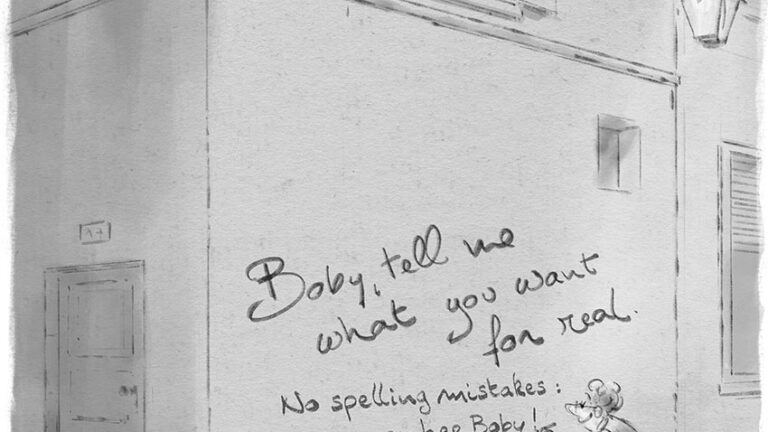 Boby, tell me
what you want
for real.
No spelling mistakes:
Boby!